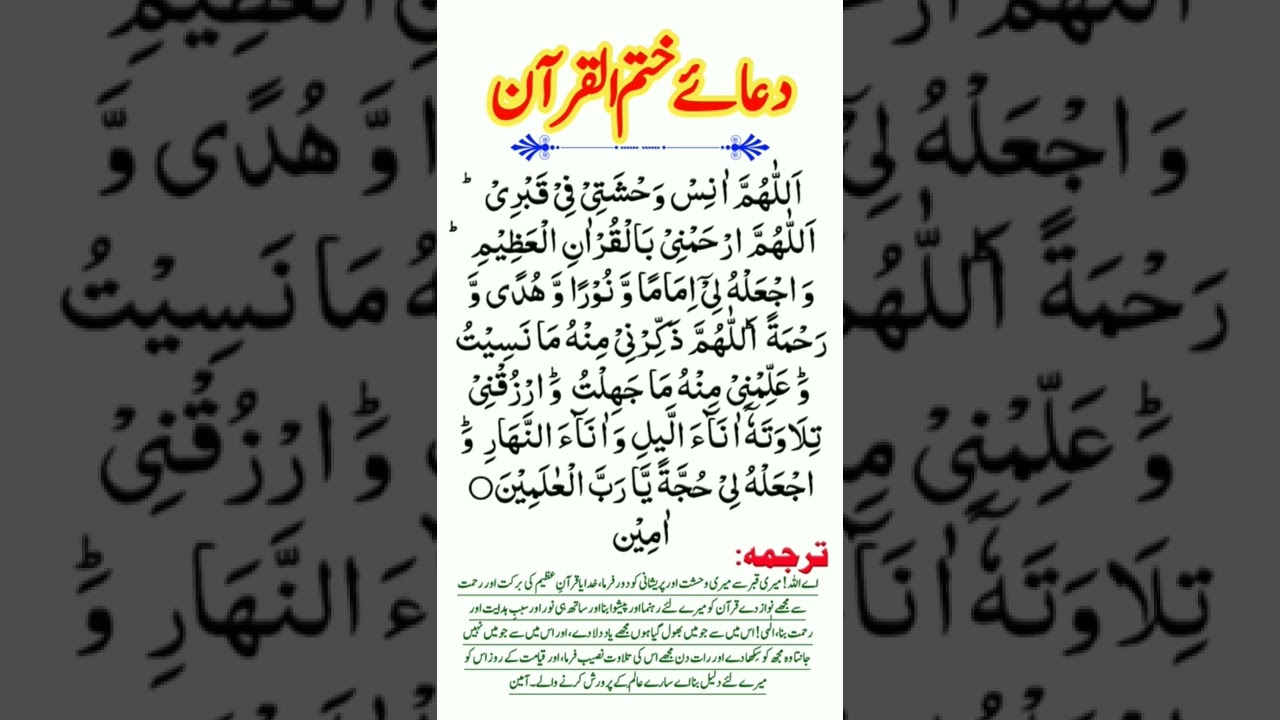 دعائے ختم القرآن
اَللّٰهُمَّ اٰنِسْ وَحْشَتِیْ فِیْ قَبْرِیْ ؕ
اَللّٰهُمَّ ارْحَمْنِیْ بَالْقُرْاٰنِ الْعَظِیْمِ ؕ
وَاجْعَلْهُ لِیْٓ اِمَامًا وَّ نُوْرًا وَّ هُدًی وَّ
رَحْمَةً ؕ اَللّٰهُمَّ ذَکِّرْنِیْ مِنْهُ مَا نَسِیْتُ
وَ ؕ عَلِّمْنِیْ مِنْهُ مَا جَهِلْتُ وَ ؕ ارْزُقْنِیْ
تِلَاوَتَهٗٓ اٰنَآءَ الَّیلِ وَ اٰنَآءَ النَّهَارِ وَ ؕ
اجْعَلْهُ لِیْ حُجَّةً یَّا رَبَّ الْعٰلَمِیْنَ○
اٰمِیْن
ترجمه:
اے اللہ! میری قبر سے میری وحشت اور پریشانی کو دور فرما، خدایا قرآنِ عظیم کی برکت اور رحمت
سے مجھے نواز دے قرآن کو میرے لئے رہنما اور پیشوا بنا اور ساتھ ہی نور اور سببِ ہدایت اور
رحمت بنا، الٰہی! اس میں سے جو میں بھول گیا ہوں مجھے یاد دلا دے، اور اس میں سے جو میں نہیں
جانتا وہ مجھ کو سِکھا دے اور رات دن مجھے اس کی تلاوت نصیب فرما، اور قیامت کے روز اس کو
میرے لئے دلیل بنا اے سارے عالم کے پرورش کرنے والے۔ آمین